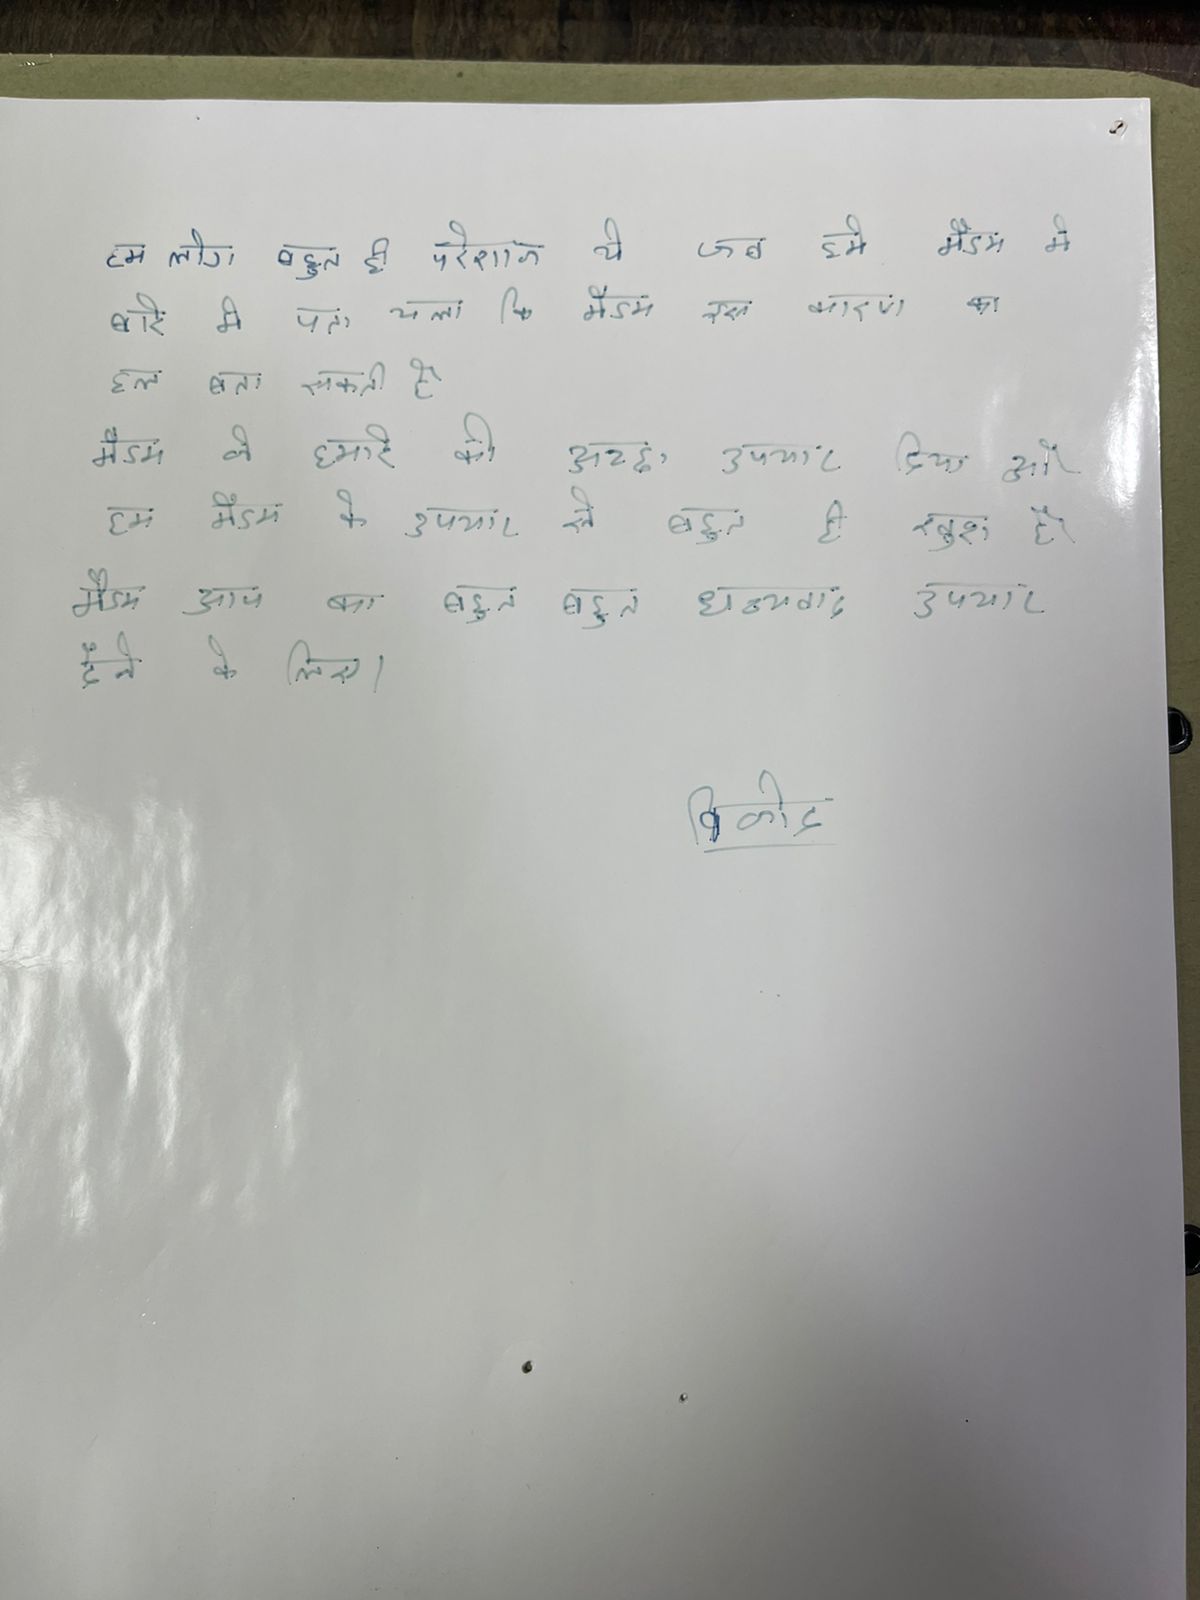 हम लोग बहुत ही परेशान थे जब हमे मैडम मे
बारे मे पता चला कि मैडम इस कारण का
हल बता सकती है
मैडम ने हमारे को अच्छा उपचार दिया और
हम मैडम के उपचार से बहुत ही खुश है
मैडम आप का बहुत बहुत धन्यवाद उपचार
देने के लिए।
विनोद